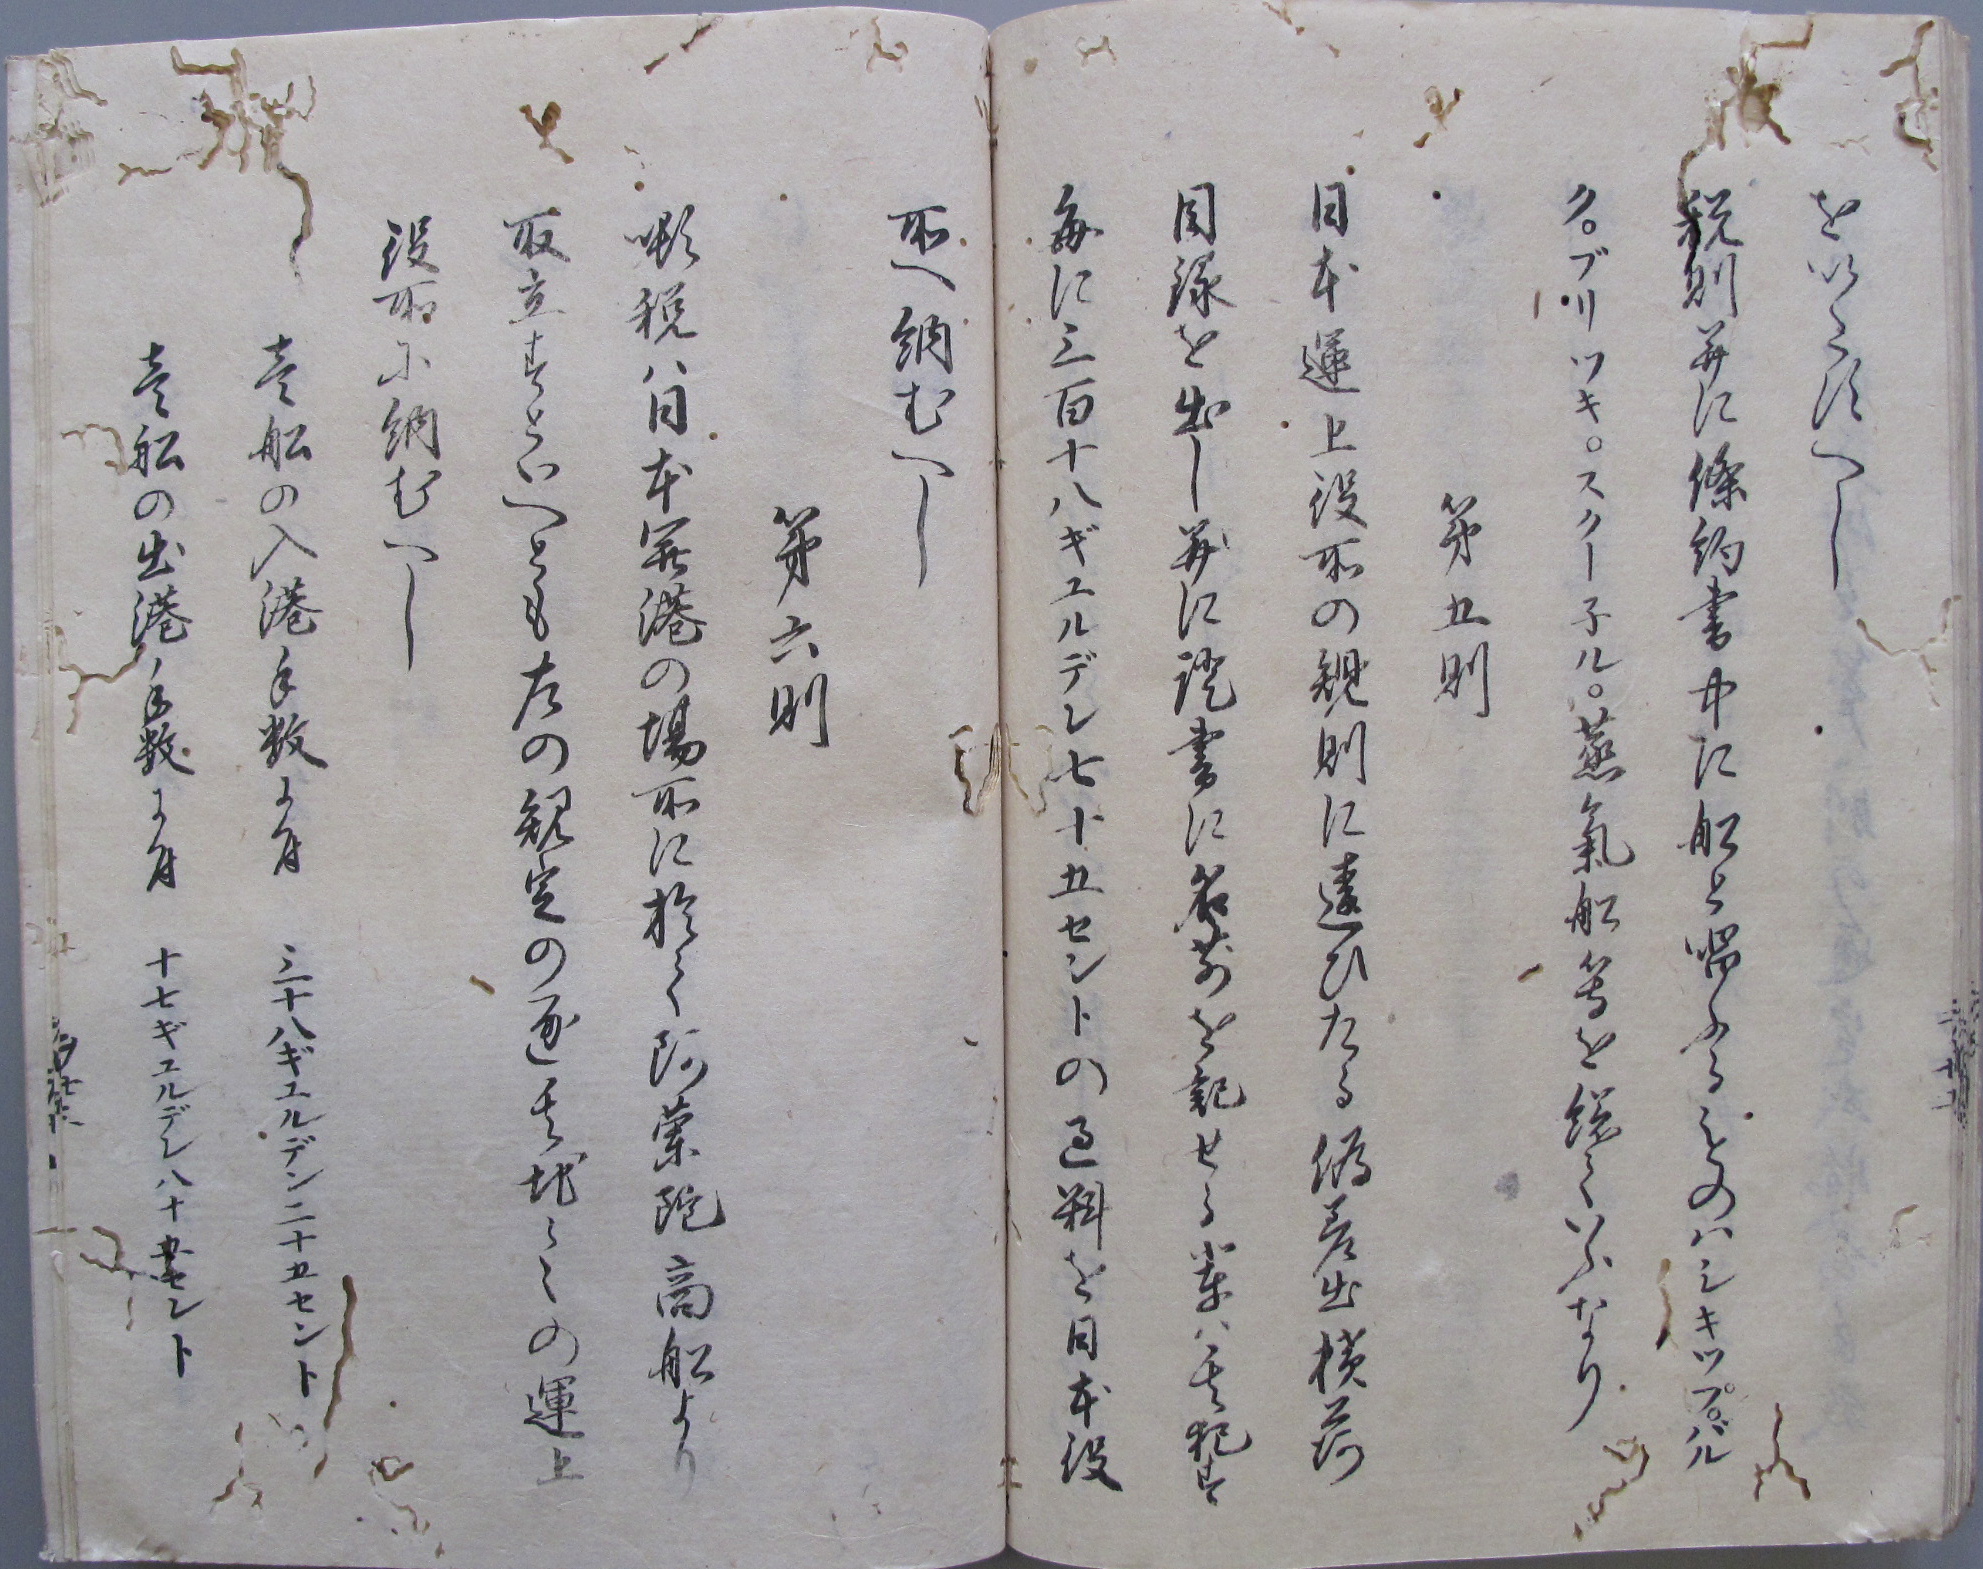 をいたすへし
税則并に條約書中に船と唱ふるものハシキップ。バル
ク。ブリツキ。スクー子ル。蒸氣船等を総ていふなり
第五則
日本運上役所の規則に違ひたる偽差出積荷
目録を出し并に證書に名前を記せる輩ハ其犯す
毎に三百十八ギユルデン七十五セントの過料を日本役
所へ納むへし
第六則
噸税ハ日本開港の場所に於て阿蘭陀商船より
取立すといへとも左の規定の通其地々々の運上
役所に納むへし
壱船の入港手数に付 三十八ギユルデン二十五セント
壱船の出港ノ手数に付 十七ギユルデン八十五セント